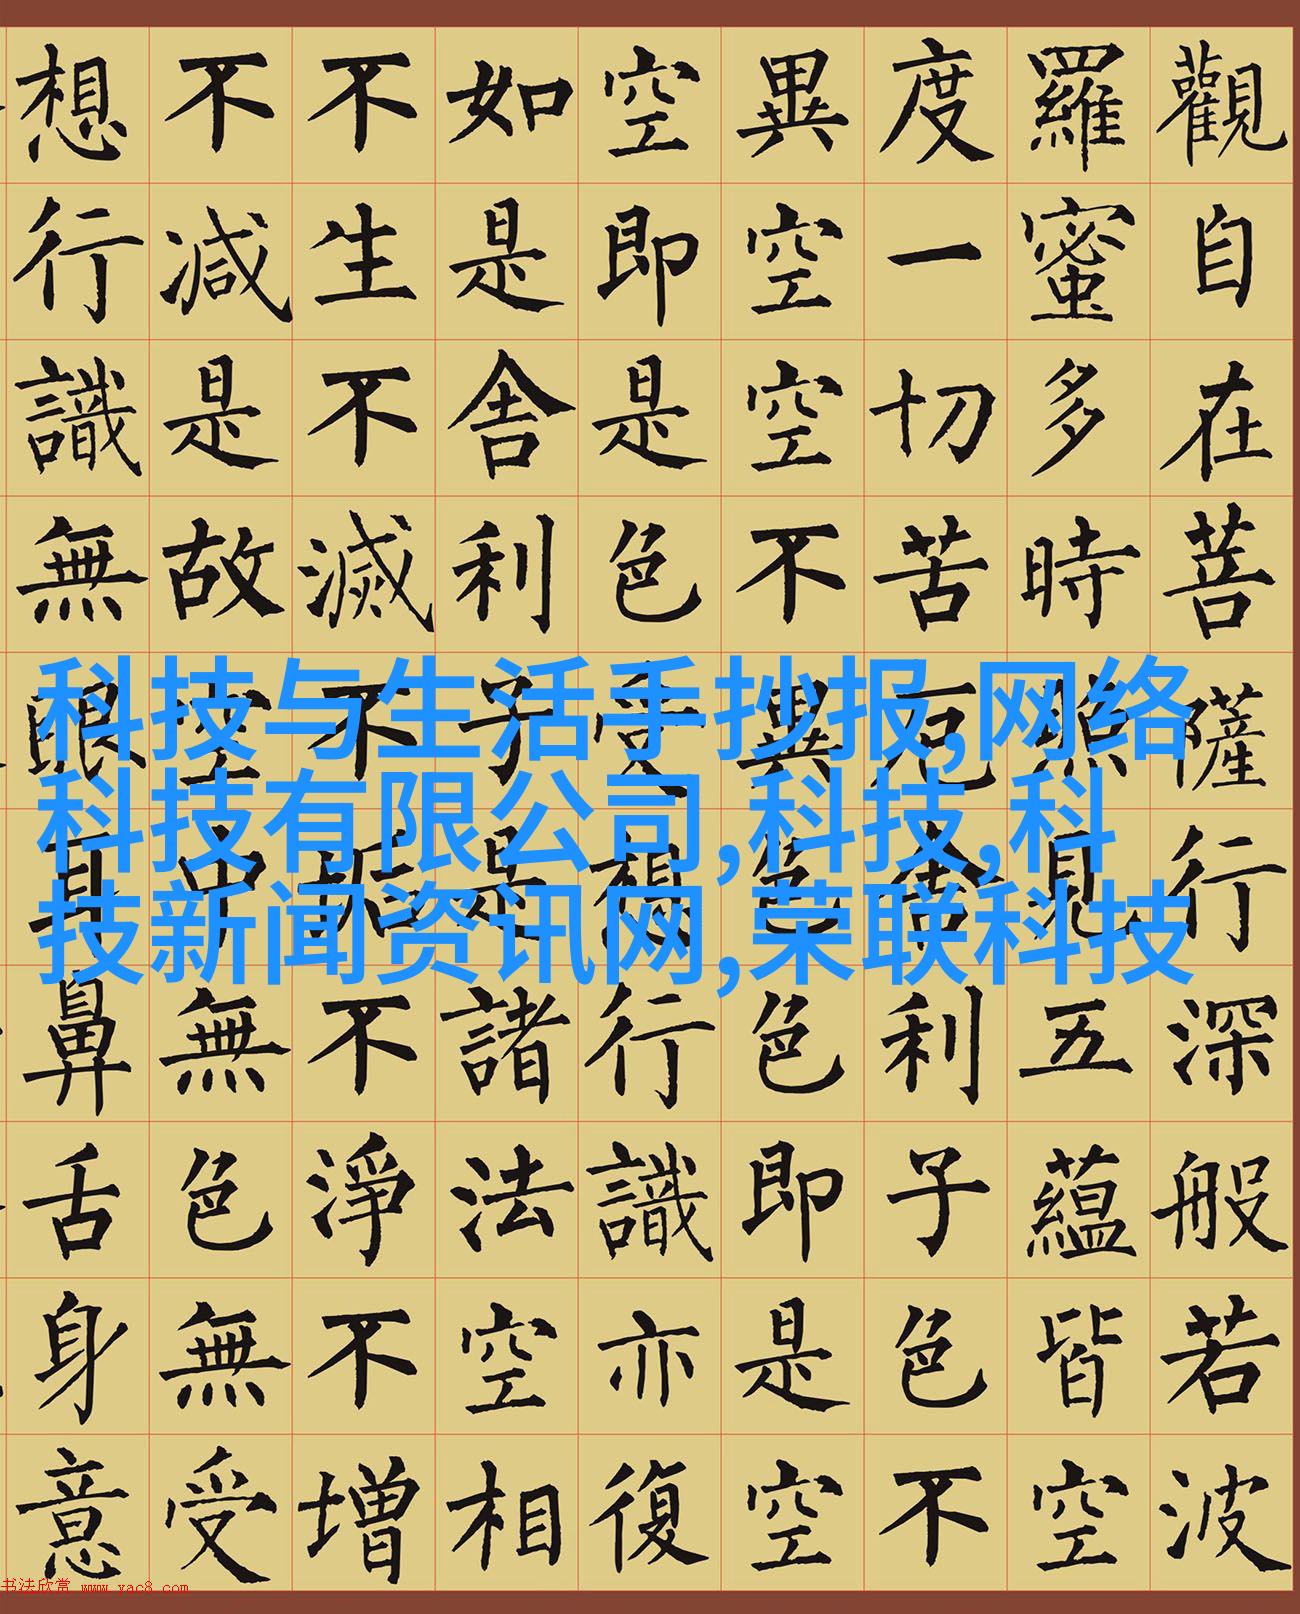 觀自在菩薩行深般若波
羅蜜多時照見五蘊皆空
度一切苦厄舍利子色不
異空空不異色色即是空
空即是色受想行識亦復
如是舍利子是諸法空相
不生不滅不垢不淨不增
不減是故空中無色無受
想行識無眼耳鼻舌身意
科技与生活手抄报,网络
科技有限公司,科技,科
技新闻资讯网,荣联科技
书法欣赏 www.yac8.com